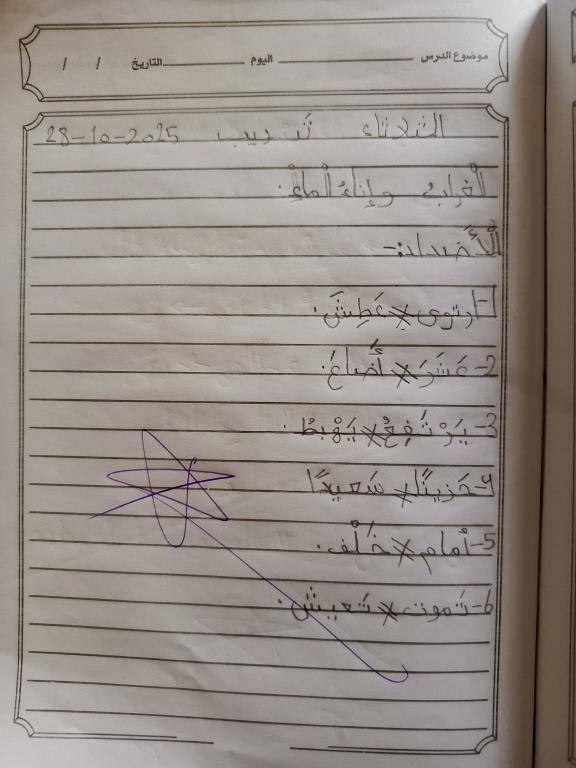 موضوع الدرس اليوم التاريخ / /
الثلاثاء تدريب 28-10-2025
الْغرابُ وإناءُ الْماءْ.
الْأَضداد:-
1- ارتوى × عَطِشَ.
2- عَشَرَ × أَضاعَ.
3- يَرْتَفِعُ × يَهْبِطُ.
4- حَزينًا × سَعيدًا
5- أمام × خَلْف.
6- تَموت × تَعيش.